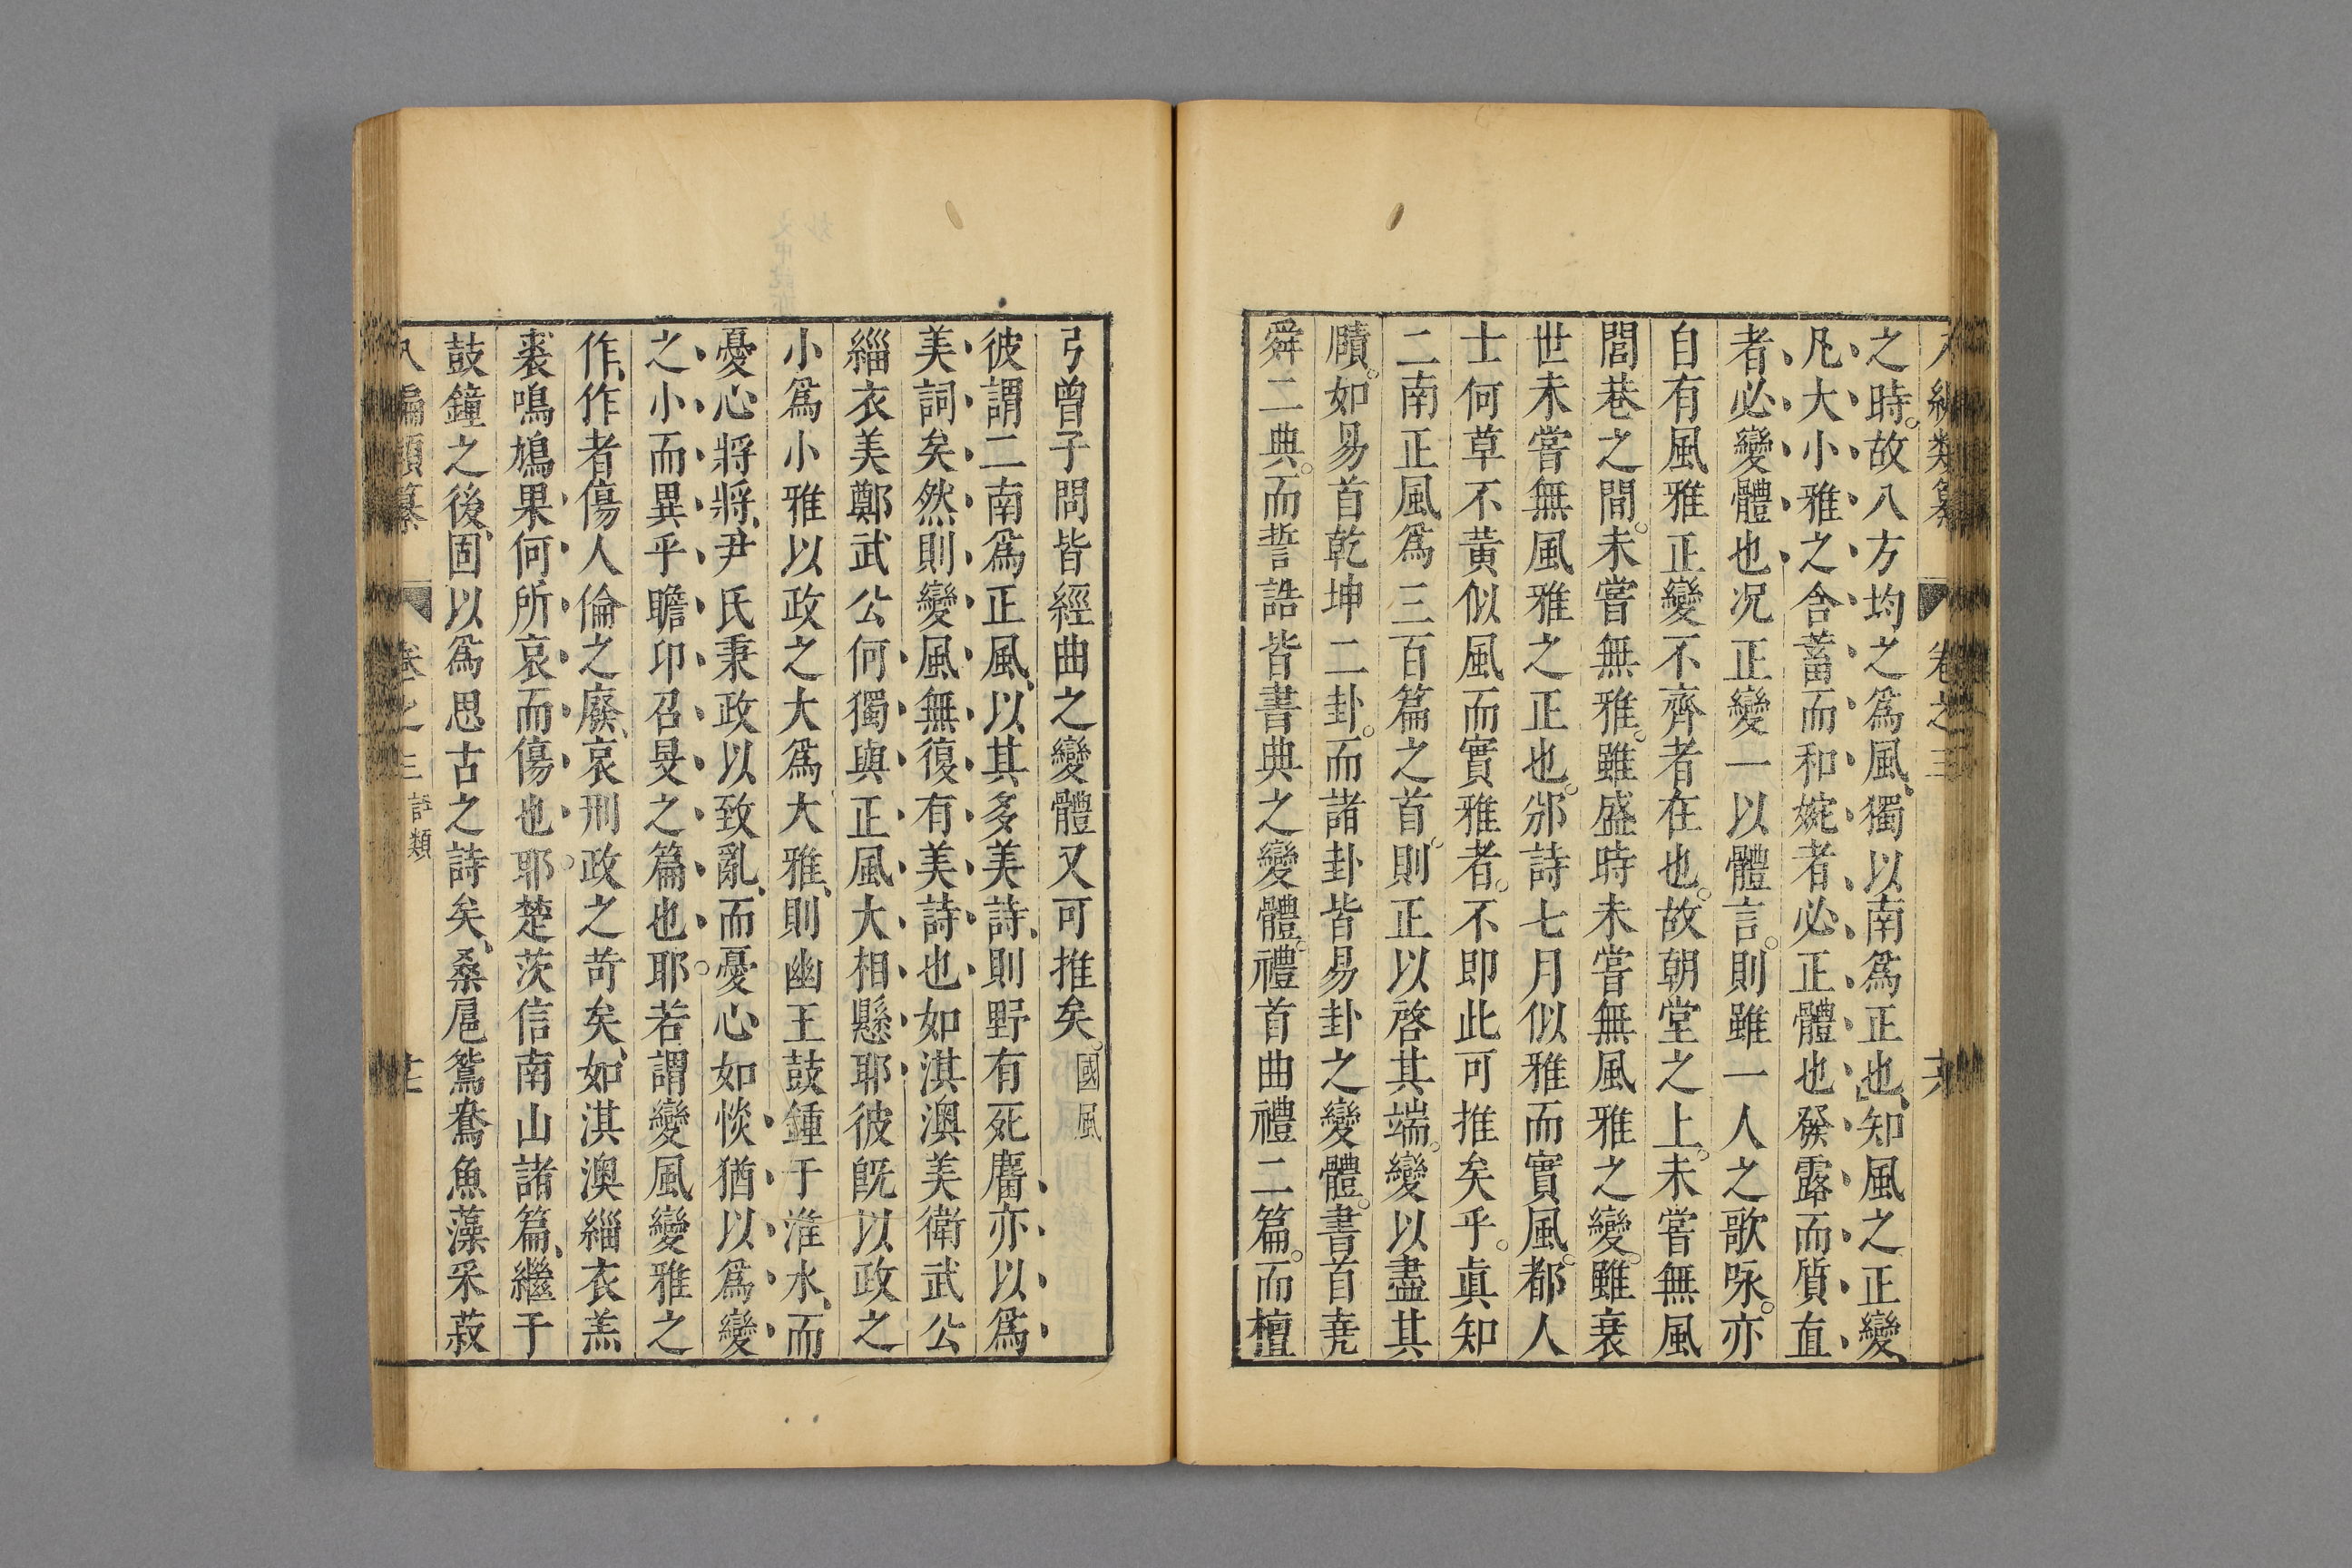 八編類纂 卷之三 十六
之時。故八方均之爲風、獨以南爲正也、知風之正變、
凡大小雅之含蓄而和婉者必正體也發露而質直
者必變體也况正變一以體言。則雖一人之歌咏。亦
自有風雅正變不齊者在也。故朝堂之上。未嘗無風
閭巷之間。未嘗無雅。雖盛時未嘗無風雅之變。雖衰
世未嘗無風雅之正也。邠詩七月似雅而實風。都人
士何草不黃似風而實雅者。不即此可推矣乎。眞知
二南正風爲三百篇之首。則正以啓其端。變以盡其
賾。如易首乾坤二卦。而諸卦皆易卦之變體。書首堯
舜二典。而誓誥皆書典之變體。禮首曲禮二篇。而檀
弓曾子問皆經曲之變體又可推矣。國風
彼謂二南爲正風、以其多美詩、則野有死麕亦以爲
美詞矣然則變風無復有美詩也如淇澳美衛武公
緇衣美鄭武公何獨與正風大相懸耶彼旣以政之
小爲小雅以政之大爲大雅、則幽王鼓鍾于淮水、而
憂心將將、尹氏秉政以致亂、而憂心如惔猶以爲變
之小而異乎瞻卬召旻之篇也耶若謂變風變雅之
作、作者傷人倫之廢、哀刑政之苛矣、如淇澳緇衣羔
裘鳴鳩果何所哀而傷也耶楚茨信南山諸篇、繼于
鼓鐘之後、固以爲思古之詩矣、桑扈鴛鴦魚藻采菽
八編類纂 卷之三 詩類